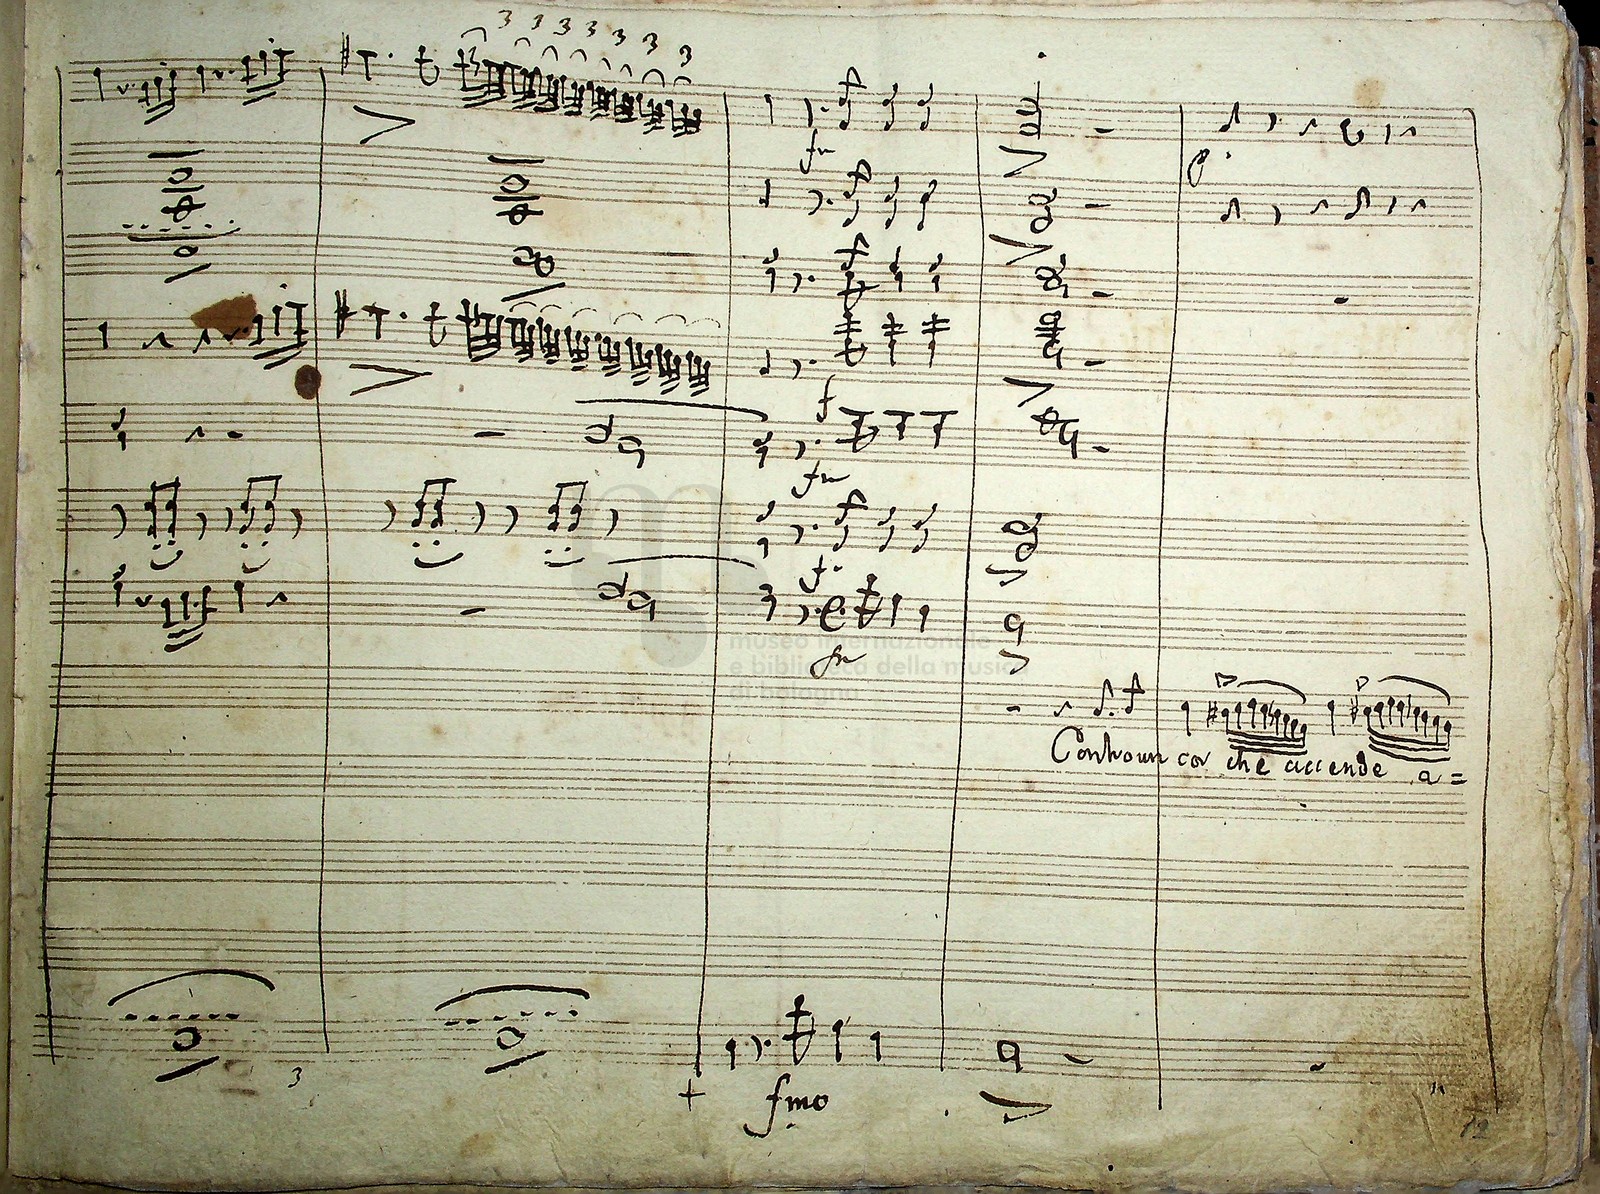 3 3 3 3 3 3 3
fm
p.
f
fm
f
fm
museo internazionale
e biblioteca della musica
di bologna
Contro un cor che accende a =
3
+ fmo
12